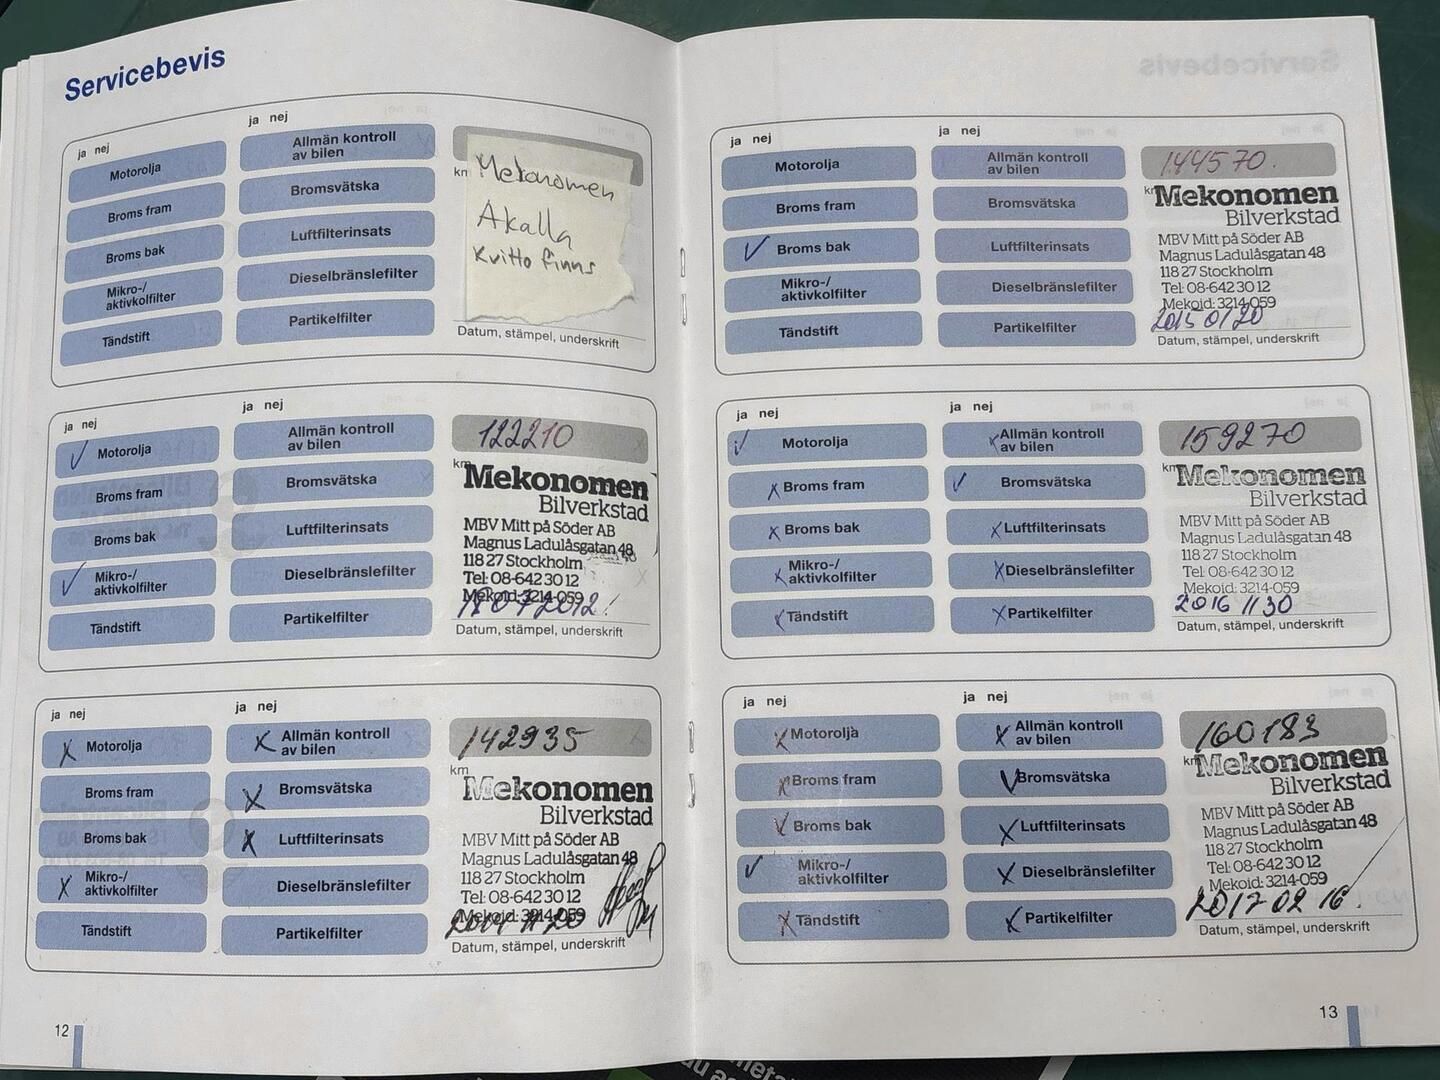 Servicebevis
ja nej
ja nej
Motorolja
Broms fram
Broms bak
Mikro-/
aktivkolfilter
Tändstift
Allmän kontroll
av bilen
Bromsvätska
Luftfilterinsats
Dieselbränslefilter
Partikelfilter
km
Mekonomen
Akalla
Kvitto finns
Datum, stämpel, underskrift
ja nej
ja nej
Motorolja
Broms fram
Broms bak
Mikro-/
aktivkolfilter
Tändstift
Allmän kontroll
av bilen
Bromsvätska
Luftfilterinsats
Dieselbränslefilter
Partikelfilter
122210
km
Mekonomen
Bilverkstad
MBV Mitt på Söder AB
Magnus Ladulåsgatan 48
118 27 Stockholm
Tel: 08-642 30 12
Mekoid: 3214-059
Datum, stämpel, underskrift
ja nej
ja nej
Motorolja
Broms fram
Broms bak
Mikro-/
aktivkolfilter
Tändstift
Allmän kontroll
av bilen
Bromsvätska
Luftfilterinsats
Dieselbränslefilter
Partikelfilter
142935
km
Mekonomen
Bilverkstad
MBV Mitt på Söder AB
Magnus Ladulåsgatan 48
118 27 Stockholm
Tel: 08-642 30 12
Mekoid: 3214-059
Datum, stämpel, underskrift
12
ja nej
ja nej
Motorolja
Broms fram
Broms bak
Mikro-/
aktivkolfilter
Tändstift
Allmän kontroll
av bilen
Bromsvätska
Luftfilterinsats
Dieselbränslefilter
Partikelfilter
144570.
km
Mekonomen
Bilverkstad
MBV Mitt på Söder AB
Magnus Ladulåsgatan 48
118 27 Stockholm
Tel: 08-642 30 12
Mekoid: 3214-059
2015 01 20
Datum, stämpel, underskrift
ja nej
ja nej
Motorolja
Broms fram
Broms bak
Mikro-/
aktivkolfilter
Tändstift
Allmän kontroll
av bilen
Bromsvätska
Luftfilterinsats
Dieselbränslefilter
Partikelfilter
159270
km
Mekonomen
Bilverkstad
MBV Mitt på Söder AB
Magnus Ladulåsgatan 48
118 27 Stockholm
Tel: 08-642 30 12
Mekoid: 3214-059
2016 11 30
Datum, stämpel, underskrift
ja nej
ja nej
Motorolja
Broms fram
Broms bak
Mikro-/
aktivkolfilter
Tändstift
Allmän kontroll
av bilen
Bromsvätska
Luftfilterinsats
Dieselbränslefilter
Partikelfilter
160183
km
Mekonomen
Bilverkstad
MBV Mitt på Söder AB
Magnus Ladulåsgatan 48
118 27 Stockholm
Tel: 08-642 30 12
Mekoid: 3214-059
2017 02 16.
Datum, stämpel, underskrift
13